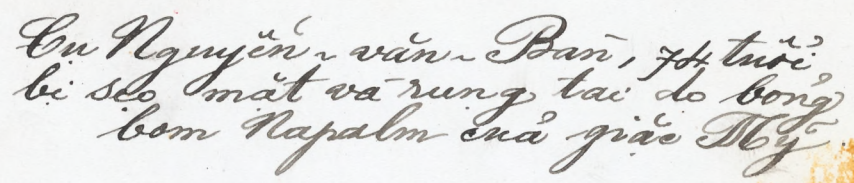 Cụ Nguyễn-văn-Ban, 74 tuổi
bị sẹo mặt và rụng tai do bỏng
bom Napalm của giặc Mỹ